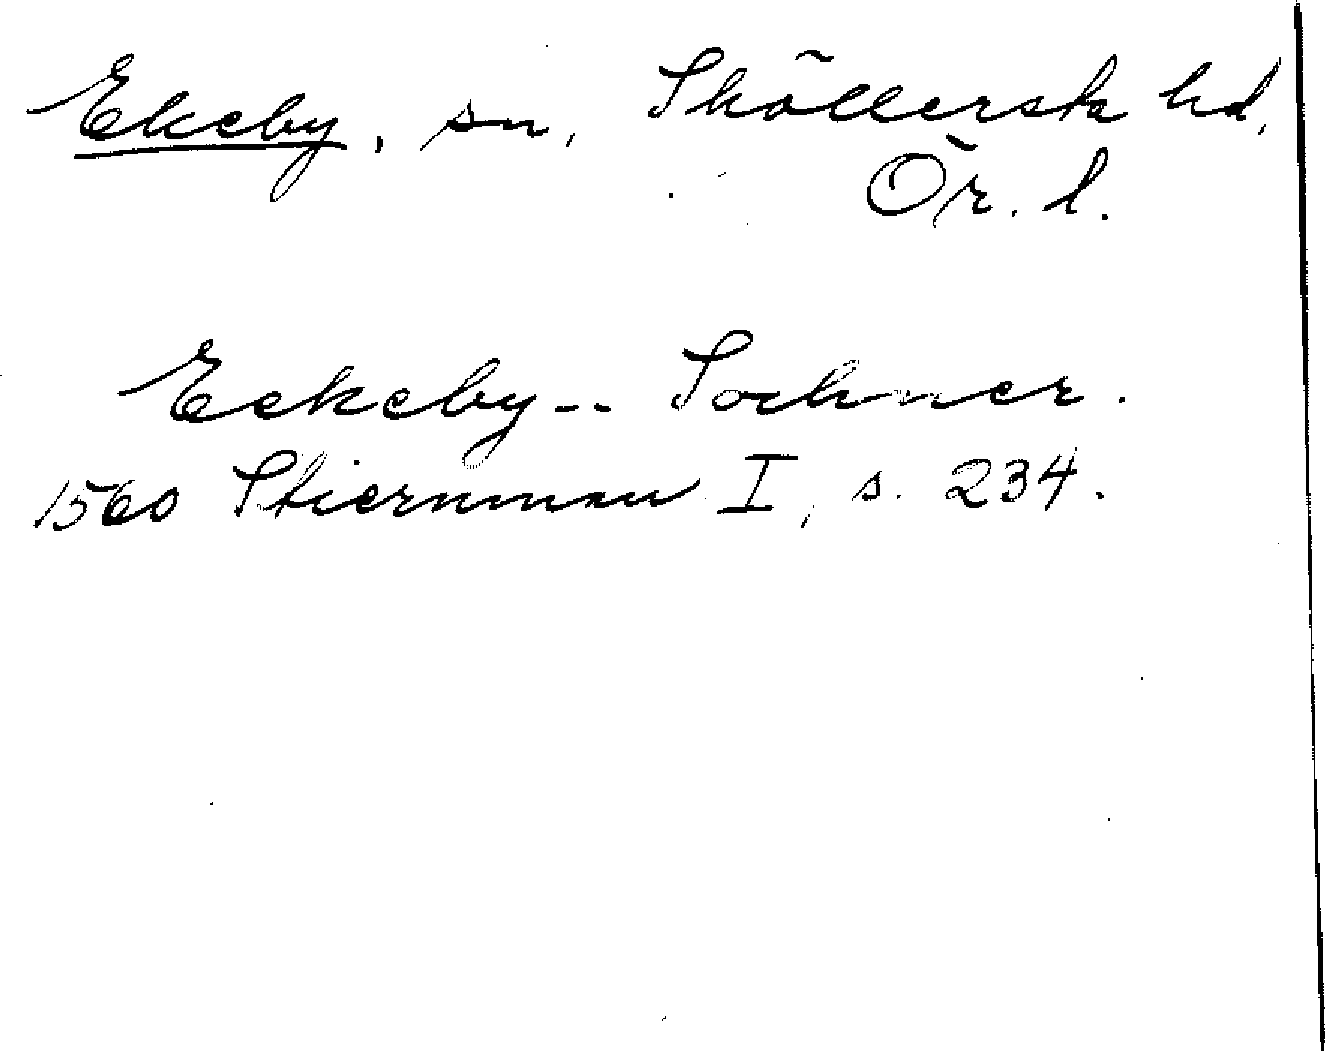 Ekeby, sn, Sköllersk hd,
Ör. l.
Eckeby-- Sochner.
1560 Stiernman I, s. 234.